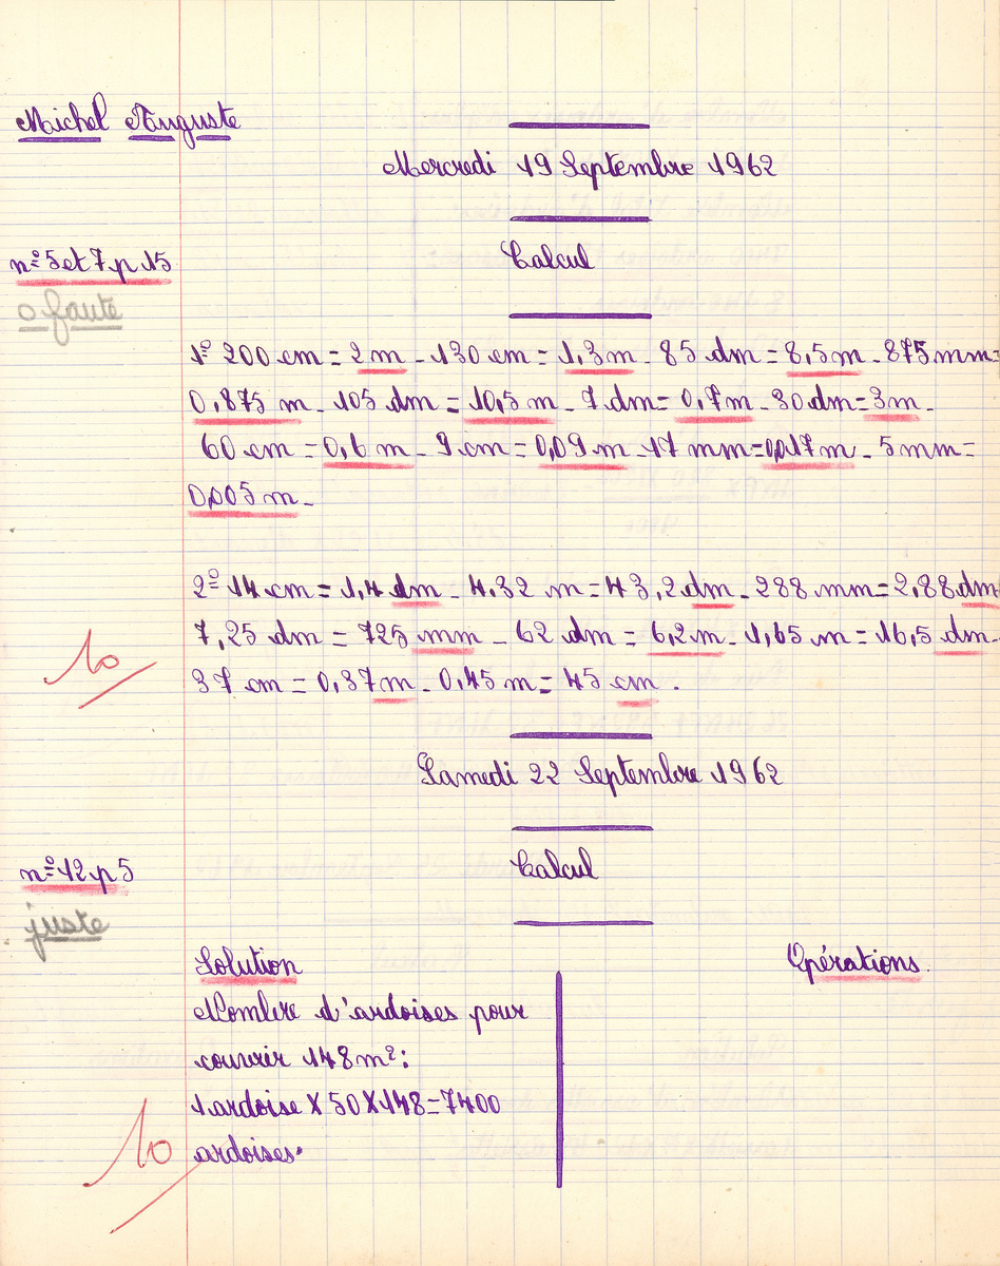 Michel Auguste
Mercredi 19 Septembre 1962
n° 5 et 7 p 15
Calcul
0 faute
1° 200 cm = 2 m - 130 cm = 1,3 m - 85 dm = 8,5 m - 875 mm =
0,875 m - 105 dm = 10,5 m - 7 dm = 0,7 m - 30 dm = 3 m -
60 cm = 0,6 m - 9 cm = 0,09 m - 17 mm = 0,017 m - 5 mm =
0,005 m -
2° 14 cm = 1,4 dm - 4,32 m = 43,2 dm - 288 mm = 2,88 dm
7,25 dm = 725 mm - 62 dm = 6,2 m - 1,65 m = 16,5 dm -
10
37 cm = 0,37 m - 0,45 m = 45 cm .
Samedi 22 Septembre 1962
n° 12 p 5
Calcul
juste
Solution
Opérations.
Nombre d'ardoises pour
couvrir 148 m² :
1 ardoise X 50 X 148 = 7400
10
ardoises.